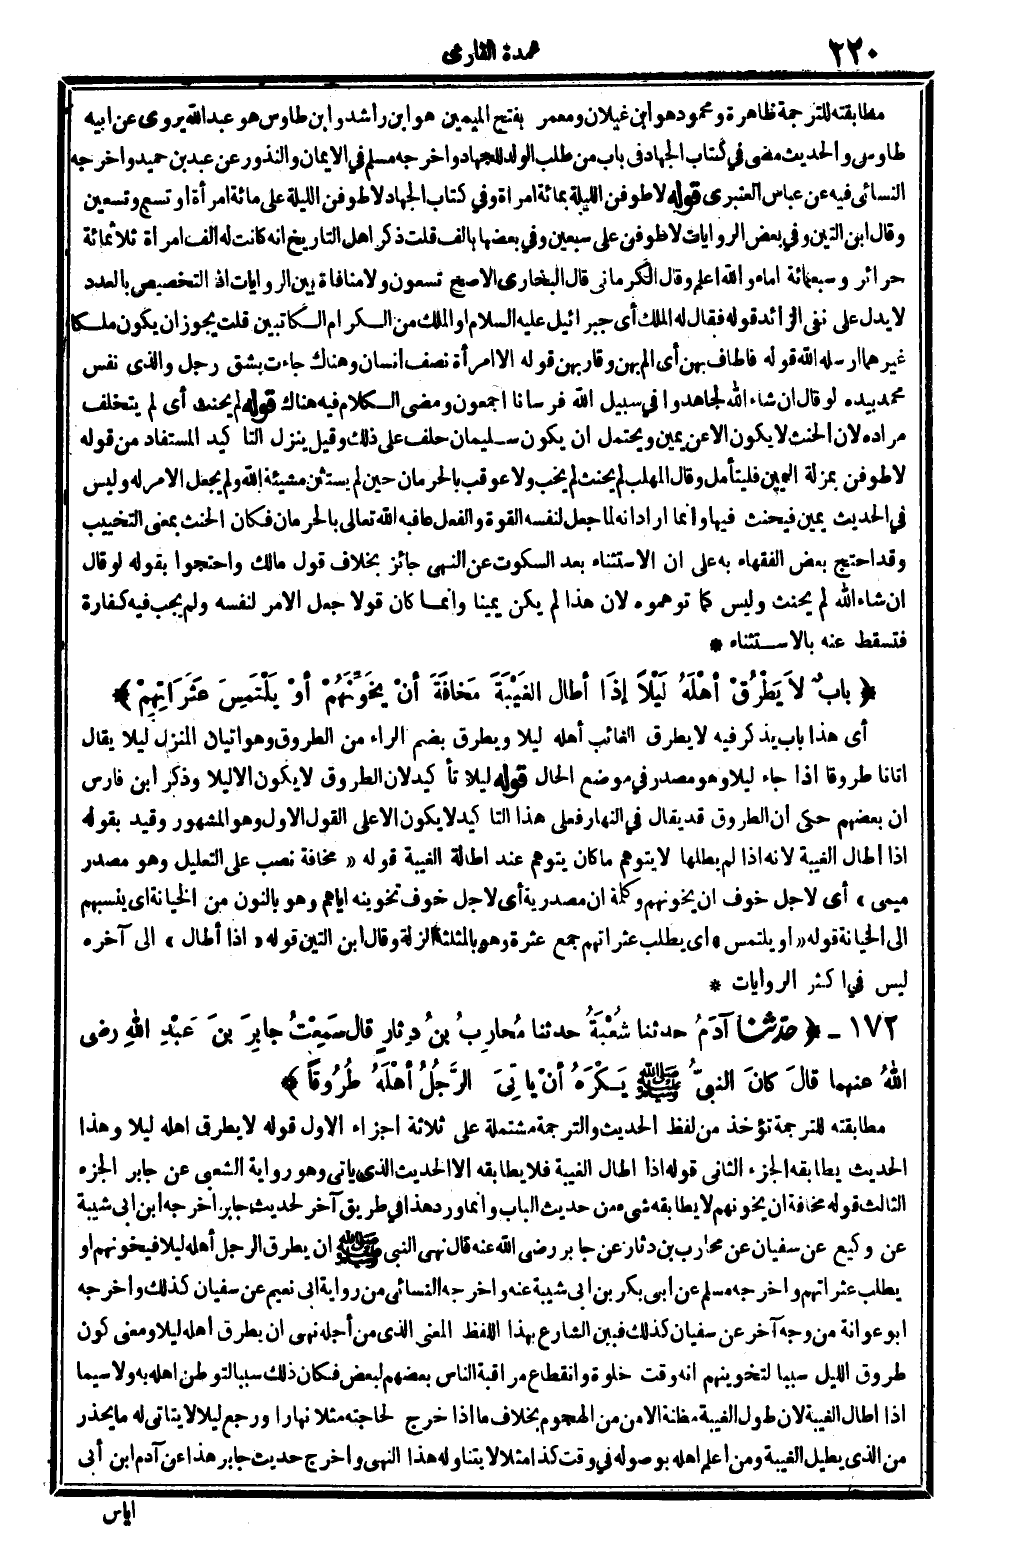 ٢٢٠
عمدة القارى
مطابقته للترجمة ظاهرة ومحمود هو ابن غيلان ومعمر بفتح الميمين هو ابن راشد وابن طاوس هو عبد الله يروى عن ابيه
طاوس والحديث مضى في كتاب الجهاد فى باب من طلب الولد للجهاد واخرجه مسلم في الايمان والنذور عن عبد بن حميد واخرجه
النسائى فيه عن عباس العنبرى قوله لاطوفن الليلة بمائة امراة وفي كتاب الجهاد لاطوفن الليلة على مائة امرأة او تسع وتسعين
وقال ابن التين وفي بعض الروايات لاطوفن على سبعين وفي بعضها بالف قلت ذكر اهل التاريخ انه كانت له الف امراة ثلاثمائة
حرائر وسبعمائة اماء والله اعلم وقال الكرمانى قال البخارى الاصح تسعون ولا منافاة بين الروايات اذ التخصيص بالعدد
لا يدل على نفى الزائد قوله فقال له الملك أى جبرائيل عليه السلام او الملك من الكرام الكاتبين قلت يجوز ان يكون ملكا
غيرهما ارسله الله قوله فاطاف بهن أى الم بهن وقاربهن قوله الا امرأة نصف انسان وهناك جاءت بشق رجل والذى نفس
محمد بيده لو قال ان شاء الله لجاهدوا في سبيل الله فرسانا اجمعون ومضى الكلام فيه هناك قوله لم يحنث أى لم يتخلف
مراده لان الحنث لا يكون الا عن يمين ويحتمل ان يكون سليمان حلف على ذلك وقيل ينزل التاكيد المستفاد من قوله
لاطوفن بمزلة اليمين فليتأمل وقال المهلب لم يحنث لم يخب ولا عوقب بالحرمان حين لم يستثن مشيئة الله ولم يجعل الامر له وليس
في الحديث يمين فيحنث فيها وانما اراد انه لما جعل لنفسه القوة والفعل عاقبه الله تعالى بالحرمان فكان الحنث بمعنى التخييب
وقد احتج بعض الفقهاء به على ان الاستثناء بعد السكوت عن النهى جائز بخلاف قول مالك واحتجوا بقوله لو قال
ان شاء الله لم يحنث وليس كما توهموه لان هذا لم يكن يمينا وانما كان قولا جعل الامر لنفسه ولم يجب فيه كفارة
فتسقط عنه بالاستثناء *
﴿ بابٌ لاَ يَطْرُقْ أهْلَهُ لَيْلاً إذَا أطال الغَيْبَةَ مَخافَةَ أنْ يخَوِّنَهُمْ أوْ يَلْتَمِسَ عَثَرَاتِهِمْ ﴾
أى هذا باب يذكر فيه لا يطرق الغائب أهله ليلا ويطرق بضم الراء من الطروق وهو اتيان المنزل ليلا يقال
اتانا طروقا اذا جاء ليلا وهو مصدر في موضع الحال قوله ليلا تأكيد لان الطروق لا يكون الا ليلا وذكر ابن فارس
ان بعضهم حكى أن الطروق قد يقال في النهار فعلى هذا التاكيد لا يكون الا على القول الاول وهو المشهور وقيد بقوله
اذا أطال الغيبة لانه اذا لم يطلها لا يتوهم ما كان يتوهم عند اطالة الغيبة قوله « مخافة نصب على التعليل وهو مصدر
ميمى » أى لاجل خوف ان يخونهم وكلمة ان مصدرية أى لاجل خوف تخوينه اياهم وهو بالنون من الخيانة اى ينسبهم
الى الخيانة قوله « او يلتمس » اى يطلب عثراتهم جمع عثرة وهو بالمثلثة الزلة وقال ابن التين قوله « اذا أطال » الى آخره
ليس في اكثر الروايات *
١٧٢ - ﴿ حدّثنا آدَمُ حدثنا شُعْبَةُ حدثنا مُحارِبُ بنُ دِثارٍ قال سَمِعْتُ جابِرَ بنَ عَبْدِ اللهِ رضى
اللهُ عنهما قالَ كانَ النبىُّ ﷺ يَكْرَهُ أنْ يأتِىَ الرَّجُلُ أهْلَهُ طُرُوقاً ﴾
مطابقته للترجمة تؤخذ من لفظ الحديث والترجمة مشتملة على ثلاثة اجزاء الاول قوله لا يطرق اهله ليلا وهذا
الحديث يطابقه الجزء الثانى قوله اذا اطال الغيبة فلا يطابقه الا الحديث الذى ياتى وهو رواية الشعبى عن جابر الجزء
الثالث قوله مخافة ان يخونهم لا يطابقه شىء من حديث الباب وانما ورد هذا في طريق آخر لحديث جابر اخرجه ابن ابى شيبة
عن وكيع عن سفيان عن محارب بن دثار عن جابر رضى الله عنه قال نهى النبى ﷺ ان يطرق الرجل أهله ليلا فيخونهم او
يطلب عثراتهم واخرجه مسلم عن ابى بكر بن ابى شيبة عنه واخرجه النسائى من رواية ابى نعيم عن سفيان كذلك واخرجه
ابو عوانة من وجه آخر عن سفيان كذلك فبين الشارع بهذا اللفظ المعنى الذى من أجله نهى ان يطرق أهله ليلا ومعنى كون
طروق الليل سببا لتخوينهم انه وقت خلوة وانقطاع مراقبة الناس بعضهم لبعض فكان ذلك سببا لتوطن اهله به ولا سيما
اذا اطال الغيبة لان طول الغيبة مظنة الامن من الهجوم بخلاف ما اذا خرج لحاجته مثلا نهارا ورجع ليلا لا يتاتى له ما يحذر
من الذى يطيل الغيبة ومن أعلم اهله بوصوله في وقت كذا مثلا لا يتناوله هذا النهى واخرج حديث جابر هذا عن آدم ابن أبى
اياس